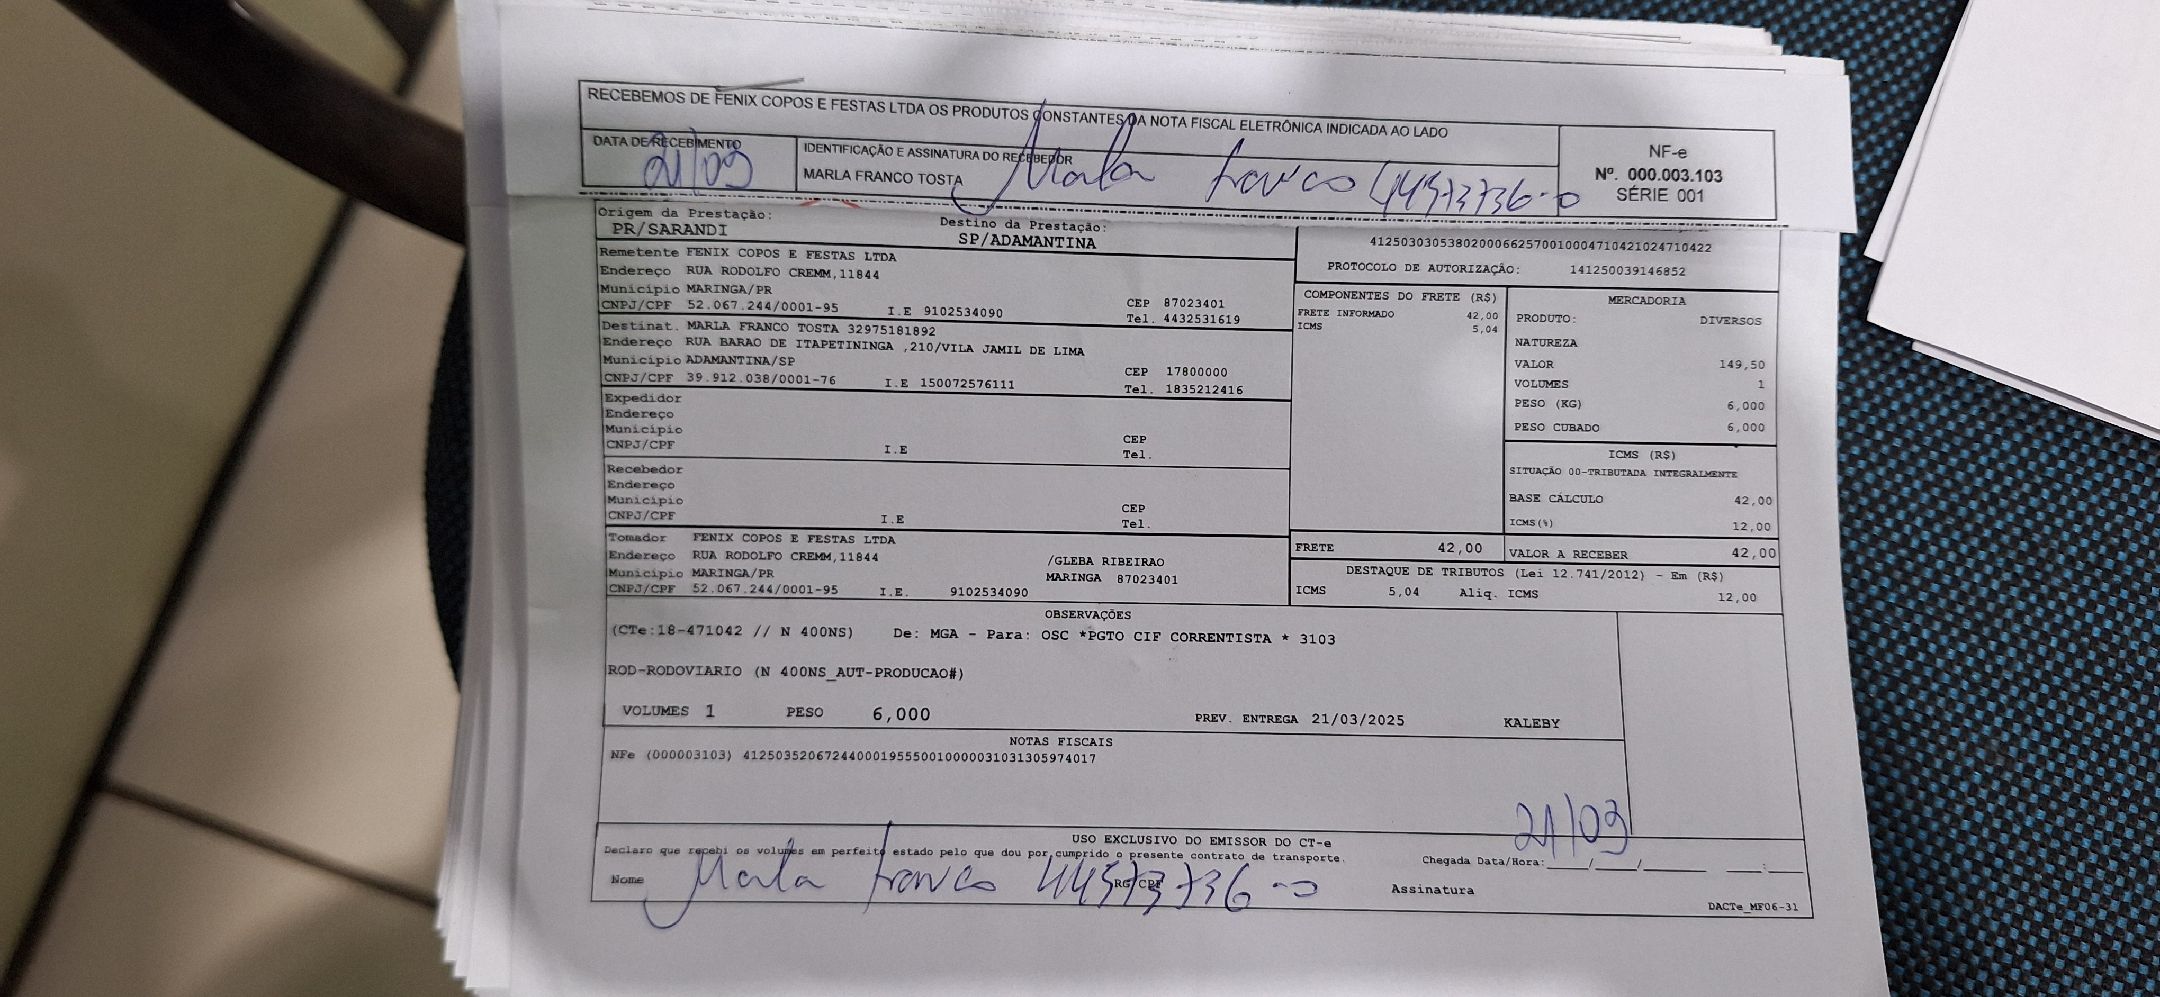 RECEBEMOS DE FENIX COPOS E FESTAS LTDA OS PRODUTOS CONSTANTES DA NOTA FISCAL ELETRÔNICA INDICADA AO LADO
DATA DE RECEBIMENTO
21/03
IDENTIFICAÇÃO E ASSINATURA DO RECEBEDOR
MARLA FRANCO TOSTA
Marla Franco 44573736-0
NF-e
Nº. 000.003.103
SÉRIE 001
Origem da Prestação:
PR/SARANDI
Destino da Prestação:
SP/ADAMANTINA
41250303053802000662570010004710421024710422
PROTOCOLO DE AUTORIZAÇÃO: 141250039146852
Remetente FENIX COPOS E FESTAS LTDA
Endereço RUA RODOLFO CREMM,11844
Município MARINGA/PR
CNPJ/CPF 52.067.244/0001-95 I.E 9102534090
CEP 87023401
Tel. 4432531619
Destinat. MARLA FRANCO TOSTA 32975181892
Endereço RUA BARAO DE ITAPETININGA ,210/VILA JAMIL DE LIMA
Município ADAMANTINA/SP
CNPJ/CPF 39.912.038/0001-76 I.E 150072576111
CEP 17800000
Tel. 1835212416
Expedidor
Endereço
Município
CNPJ/CPF I.E
CEP
Tel.
Recebedor
Endereço
Município
CNPJ/CPF I.E
CEP
Tel.
Tomador FENIX COPOS E FESTAS LTDA
Endereço RUA RODOLFO CREMM,11844 /GLEBA RIBEIRAO
Município MARINGA/PR MARINGA 87023401
CNPJ/CPF 52.067.244/0001-95 I.E. 9102534090
COMPONENTES DO FRETE (R$)
FRETE INFORMADO 42,00
ICMS 5,04
MERCADORIA
PRODUTO: DIVERSOS
NATUREZA
VALOR 149,50
VOLUMES 1
PESO (KG) 6,000
PESO CUBADO 6,000
ICMS (R$)
SITUAÇÃO 00-TRIBUTADA INTEGRALMENTE
BASE CÁLCULO 42,00
ICMS(%) 12,00
FRETE 42,00 VALOR A RECEBER 42,00
DESTAQUE DE TRIBUTOS (Lei 12.741/2012) - Em (R$)
ICMS 5,04 Aliq. ICMS 12,00
OBSERVAÇÕES
(CTe:18-471042 // N 400NS) De: MGA - Para: OSC *PGTO CIF CORRENTISTA * 3103
ROD-RODOVIARIO (N 400NS_AUT-PRODUCAO#)
VOLUMES 1 PESO 6,000 PREV. ENTREGA 21/03/2025 KALEBY
NOTAS FISCAIS
NFe (000003103) 41250352067244000195550010000031031305974017
21/03
USO EXCLUSIVO DO EMISSOR DO CT-e
Declaro que recebi os volumes em perfeito estado pelo que dou por cumprido o presente contrato de transporte.
Chegada Data/Hora:___/___/______ ___:___
Nome Marla Franco RG/CPF 44573736-0 Assinatura
DACTe_MF06-31